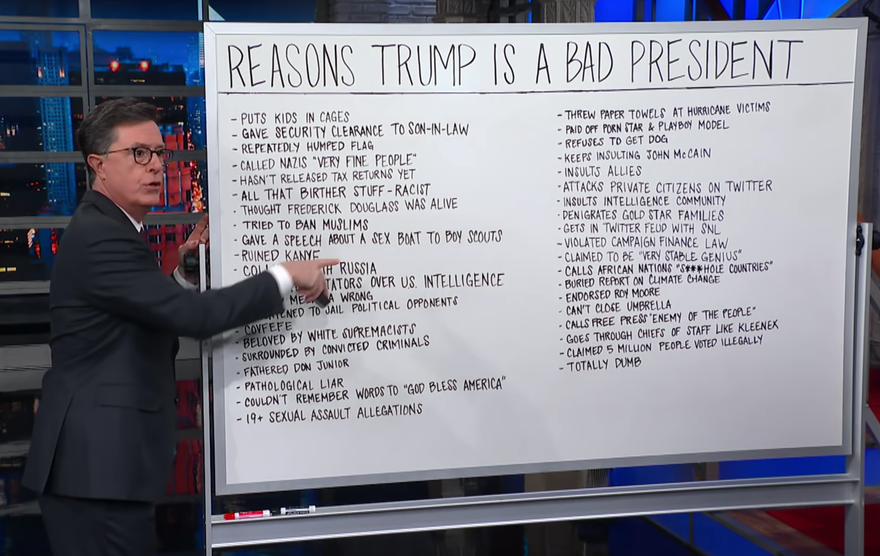 REASONS TRUMP IS A BAD PRESIDENT
- PUTS KIDS IN CAGES
- GAVE SECURITY CLEARANCE TO SON-IN-LAW
- REPEATEDLY HUMPED FLAG
- CALLED NAZIS "VERY FINE PEOPLE"
- HASN'T RELEASED TAX RETURNS YET
- ALL THAT BIRTHER STUFF - RACIST
- THOUGHT FREDERICK DOUGLASS WAS ALIVE
- TRIED TO BAN MUSLIMS
- GAVE A SPEECH ABOUT A SEX BOAT TO BOY SCOUTS
- RUINED KANYE
- RUSSIA
OVER U.S. INTELLIGENCE
WRONG
TO JAIL POLITICAL OPPONENTS
- COVFEFE
- BELOVED BY WHITE SUPREMACISTS
- SURROUNDED BY CONVICTED CRIMINALS
- FATHERED DON JUNIOR
- PATHOLOGICAL LIAR
- COULDN'T REMEMBER WORDS TO "GOD BLESS AMERICA"
- 19+ SEXUAL ASSAULT ALLEGATIONS
- THREW PAPER TOWELS AT HURRICANE VICTIMS
- PAID OFF PORN STAR & PLAYBOY MODEL
- REFUSES TO GET DOG
- KEEPS INSULTING JOHN McCAIN
- INSULTS ALLIES
- ATTACKS PRIVATE CITIZENS ON TWITTER
- INSULTS INTELLIGENCE COMMUNITY
- DENIGRATES GOLD STAR FAMILIES
- GETS IN TWITTER FEUD WITH SNL
- VIOLATED CAMPAIGN FINANCE LAW
- CLAIMED TO BE "VERY STABLE GENIUS"
- CALLS AFRICAN NATIONS "S***HOLE COUNTRIES"
- BURIED REPORT ON CLIMATE CHANGE
- ENDORSED ROY MOORE
- CAN'T CLOSE UMBRELLA
- CALLS FREE PRESS "ENEMY OF THE PEOPLE"
- GOES THROUGH CHIEFS OF STAFF LIKE KLEENEX
- CLAIMED 5 MILLION PEOPLE VOTED ILLEGALLY
- TOTALLY DUMB